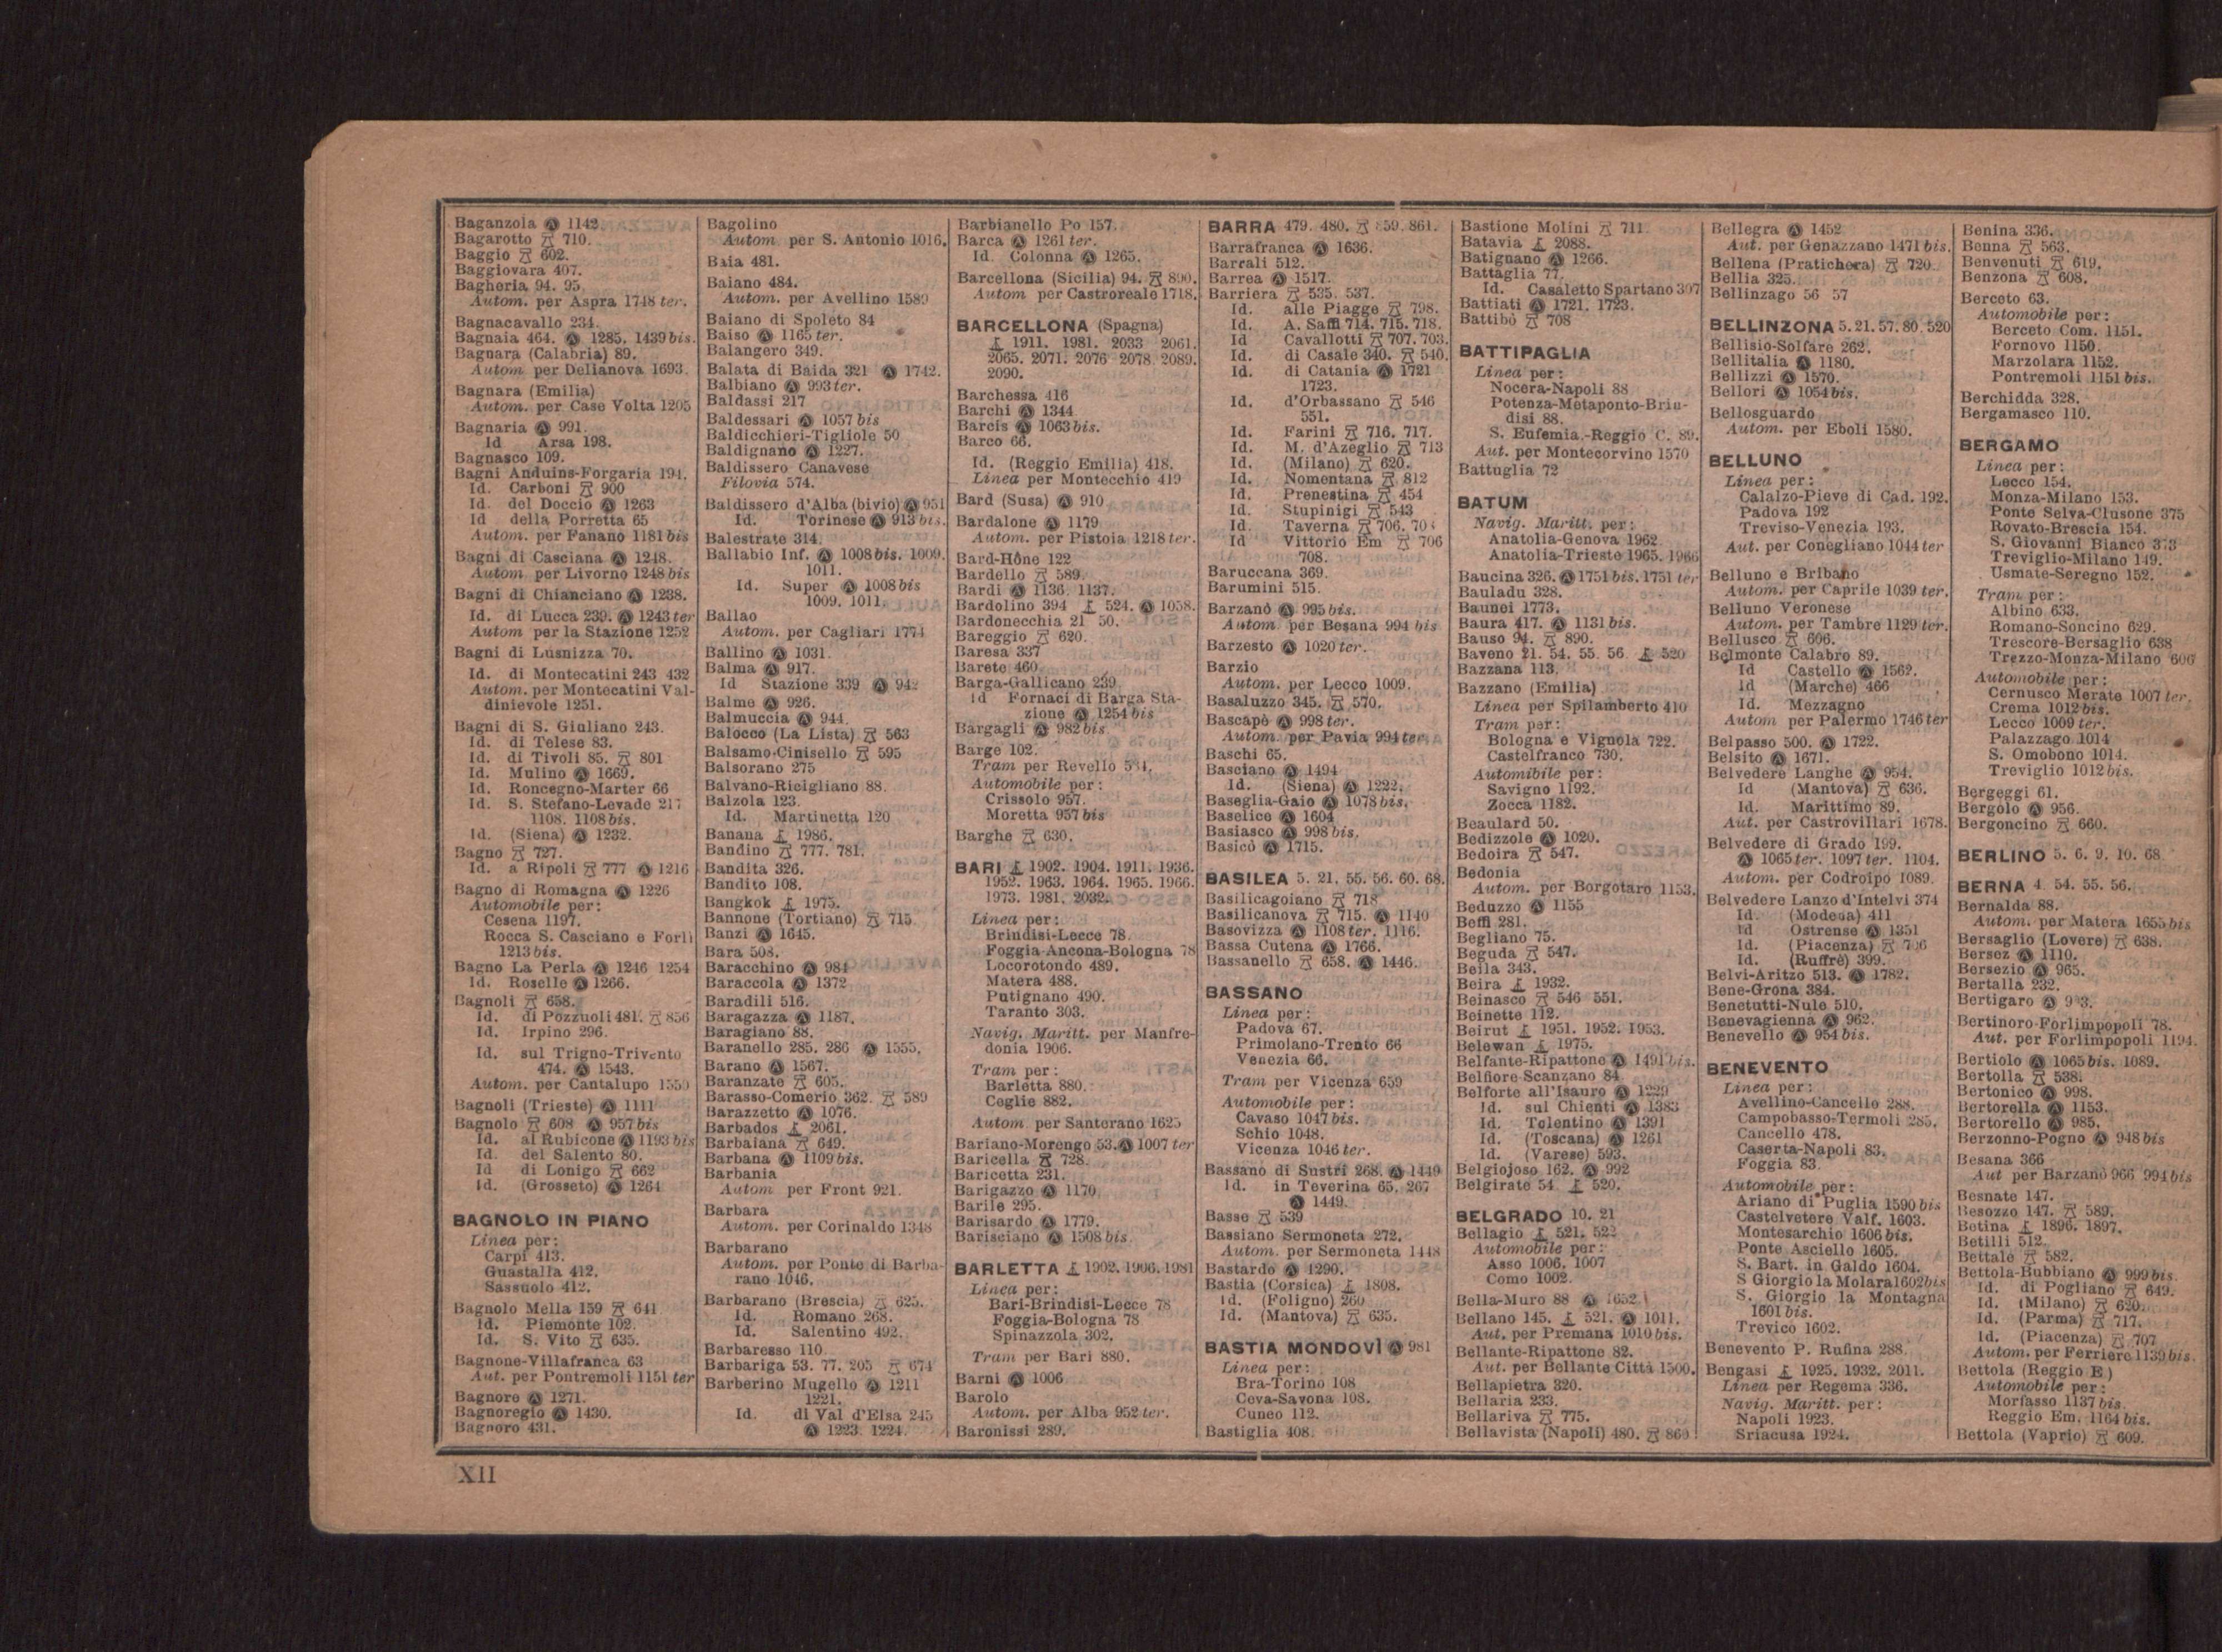 Baganzola Ⓐ 1142.
Bagarotto 710.
Baggio 602.
Baggiovara 407.
Bagheria 94. 95.
Autom. per Aspra 1748 ter.
Bagnacavallo 234.
Bagnaia 464. Ⓐ 1285. 1439 bis.
Bagnara (Calabria) 89.
Autom per Delianova 1693.
Bagnara (Emilia)
Autom. per Case Volta 1205
Bagnaria Ⓐ 991.
Id Arsa 198.
Bagnasco 109.
Bagni Anduins-Forgaria 194.
Id. Carboni 900
Id. del Doccio Ⓐ 1263
Id della Porretta 65
Autom. per Fanano 1181 bis
Bagni di Casciana Ⓐ 1248.
Autom per Livorno 1248 bis
Bagni di Chianciano Ⓐ 1238.
Id. di Lucca 239. Ⓐ 1243 ter
Autom per la Stazione 1252
Bagni di Lusnizza 70.
Id. di Montecatini 243 432
Autom. per Montecatini Val-
dinievole 1251.
Bagni di S. Giuliano 243.
Id. di Telese 83.
Id. di Tivoli 85. 801
Id. Mulino Ⓐ 1669.
Id. Roncegno-Marter 66
Id. S. Stefano-Levade 217
1108. 1108 bis.
Id. (Siena) Ⓐ 1232.
Bagno 727.
Id. a Ripoli 777 Ⓐ 1216
Bagno di Romagna Ⓐ 1226
Automobile per:
Cesena 1197.
Rocca S. Casciano e Forlì
1213 bis.
Bagno La Perla Ⓐ 1246 1254
Id. Roselle Ⓐ 1266.
Bagnoli 658.
Id. di Pozzuoli 481. 856
Id. Irpino 296.
Id. sul Trigno-Trivento
474. Ⓐ 1543.
Autom. per Cantalupo 1550
Bagnoli (Trieste) Ⓐ 1111
Bagnolo 608 Ⓐ 957 bis
Id. al Rubicone Ⓐ 1193 bis
Id. del Salento 80.
Id di Lonigo 662
Id. (Grosseto) Ⓐ 1264
BAGNOLO IN PIANO
Linea per:
Carpi 413.
Guastalla 412.
Sassuolo 412.
Bagnolo Mella 159 641
Id. Piemonte 102.
Id. S. Vito 635.
Bagnone-Villafranca 63
Aut. per Pontremoli 1151 ter
Bagnore Ⓐ 1271.
Bagnoregio Ⓐ 1430.
Bagnoro 431.
Bagolino
Autom per S. Antonio 1016.
Baia 481.
Baiano 484.
Autom. per Avellino 1589
Baiano di Spoleto 84
Baiso Ⓐ 1165 ter.
Balangero 349.
Balata di Baida 321 Ⓐ 1742.
Balbiano Ⓐ 993 ter.
Baldassi 217
Baldessari Ⓐ 1057 bis
Baldicchieri-Tigliole 50
Baldignano Ⓐ 1227.
Baldissero Canavese
Filovia 574.
Baldissero d'Alba (bivio) Ⓐ 951
Id. Torinese Ⓐ 913 bis.
Balestrate 314.
Ballabio Inf. Ⓐ 1008 bis. 1009.
1011.
Id. Super Ⓐ 1008 bis
1009. 1011.
Ballao
Autom. per Cagliari 1774
Ballino Ⓐ 1031
Balma Ⓐ 917.
Id Stazione 339 Ⓐ 942
Balme Ⓐ 926.
Balmuccia Ⓐ 944.
Balocco (La Lista) 563
Balsamo-Cinisello 595
Balsorano 275
Balvano-Ricigliano 88.
Balzola 123.
Id. Martinetta 120
Banana 1986.
Bandino 777. 781.
Bandita 326.
Bandito 108.
Bangkok 1975.
Bannone (Tortiano) 715
Banzi Ⓐ 1645.
Bara 508.
Baracchino Ⓐ 984
Baraccola Ⓐ 1372
Baradili 516.
Baragazza Ⓐ 1187.
Baragiano 88.
Baranello 285. 286 Ⓐ 1555.
Barano Ⓐ 1567.
Baranzate 605.
Barasso-Comerio 362. 589
Barazzetto Ⓐ 1076.
Barbados 2061.
Barbaiana 649.
Barbana Ⓐ 1109 bis.
Barbania
Autom per Front 921.
Barbara
Autom. per Corinaldo 1348
Barbarano
Autom. per Ponte di Barba-
rano 1046.
Barbarano (Brescia) 625.
Id. Romano 268.
Id. Salentino 492.
Barbaresso 110
Barbariga 53. 77. 205 674
Barberino Mugello Ⓐ 1211
1221.
Id. di Val d'Elsa 245
Ⓐ 1223 1224.
Barbianello Po 157.
Barca Ⓐ 1261 ter.
Id. Colonna Ⓐ 1265.
Barcellona (Sicilia) 94. 890.
Autom per Castroreale 1718.
BARCELLONA (Spagna)
1911. 1981. 2033 2061.
2065. 2071. 2076 2078. 2089.
2090.
Barchessa 416
Barchi Ⓐ 1344
Barcis Ⓐ 1063 bis.
Barco 66.
Id. (Reggio Emilia) 418.
Linea per Montecchio 419
Bard (Susa) Ⓐ 910
Bardalone Ⓐ 1179
Autom. per Pistoia 1218 ter.
Bard-Hône 122
Bardello 589.
Bardi Ⓐ 1136. 1137.
Bardolino 394 524. Ⓐ 1058.
Bardonecchia 21 50.
Bareggio 620.
Baresa 337
Barete 460
Barga-Gallicano 239
Id Fornaci di Barga Sta-
zione Ⓐ 1254 bis
Bargagli Ⓐ 982 bis
Barge 102.
Tram per Revello 534.
Automobile per:
Crissolo 957.
Moretta 957 bis
Barghe 630.
BARI 1902. 1904. 1911. 1936.
1952. 1963. 1964. 1965. 1966.
1973. 1981. 2032.
Linea per:
Brindisi-Lecce 78.
Foggia-Ancona-Bologna 78
Locorotondo 489.
Matera 488.
Putignano 490.
Taranto 303.
Navig. Maritt. per Manfre-
donia 1906.
Tram per:
Barletta 880.
Ceglie 882.
Autom per Santerano 1625
Bariano-Morengo 53. Ⓐ 1007 ter
Baricella 728.
Baricetta 231.
Barigazzo Ⓐ 1170
Barile 295.
Barisardo Ⓐ 1779.
Barisciano Ⓐ 1508 bis.
BARLETTA 1902. 1906. 1981
Linea per:
Bari-Brindisi-Lecce 78
Foggia-Bologna 78
Spinazzola 302.
Tram per Bari 880.
Barni Ⓐ 1006
Barolo
Autom. per Alba 952 ter.
Baronissi 289.
BARRA 479. 480. 859. 861.
Barrafranca Ⓐ 1636.
Barrali 512.
Barrea Ⓐ 1517.
Barriera 535. 537.
Id. alle Piagge 798.
Id. A. Saffi 714. 715. 718.
Id Cavallotti 707. 703.
Id. di Casale 340. 540.
Id. di Catania Ⓐ 1721
1723.
Id. d'Orbassano 546
551.
Id. Farini 716. 717.
Id. M. d'Azeglio 713
Id. (Milano) 620.
Id. Nomentana 812
Id. Prenestina 454
Id. Stupinigi 543
Id. Taverna 706.
Id Vittorio Em 706
708.
Baruccana 369.
Barumini 515.
Barzanò Ⓐ 995 bis.
Autom. per Besana 994 bis
Barzesto Ⓐ 1020 ter.
Barzio
Autom. per Lecco 1009.
Basaluzzo 345. 570.
Bascapè Ⓐ 998 ter.
Autom. per Pavia 994 ter
Baschi 65.
Basciano Ⓐ 1494
Id. (Siena) Ⓐ 1222.
Baseglia-Gaio Ⓐ 1078 bis.
Baselice Ⓐ 1604
Basiasco Ⓐ 998 bis.
Basicò Ⓐ 1715.
BASILEA 5. 21. 55. 56. 60. 68.
Basilicagoiano 718
Basilicanova 715. Ⓐ 1140
Basovizza Ⓐ 1108 ter. 1116.
Bassa Cutena Ⓐ 1766.
Bassanello 658. Ⓐ 1446.
BASSANO
Linea per:
Padova 67.
Primolano-Trento 66
Venezia 66.
Tram per Vicenza 659
Automobile per:
Cavaso 1047 bis.
Schio 1048.
Vicenza 1046 ter.
Bassano di Sustri 268. Ⓐ 1449
Id. in Teverina 65. 267
Ⓐ 1449.
Basse 539
Bassiano Sermoneta 272.
Autom. per Sermoneta 1448
Bastardo Ⓐ 1290.
Bastia (Corsica) 1808.
Id. (Foligno) 260
Id. (Mantova) 635.
BASTIA MONDOVÌ Ⓐ 981
Linea per:
Bra-Torino 108
Ceva-Savona 108.
Cuneo 112.
Bastiglia 408.
Bastione Molini 711
Batavia 2088.
Batignano Ⓐ 1266.
Battaglia 77.
Id. Casaletto Spartano 307
Battiati Ⓐ 1721. 1723.
Battibò 708
BATTIPAGLIA
Linea per:
Nocera-Napoli 88
Potenza-Metaponto-Brin-
disi 88.
S. Eufemia.-Reggio C. 89.
Aut. per Montecorvino 1570
Battuglia 72
BATUM
Navig. Maritt. per:
Anatolia-Genova 1962
Anatolia-Trieste 1965. 1966
Baucina 326. Ⓐ 1751 bis. 1751 ter
Bauladu 328.
Baunei 1773.
Baura 417. Ⓐ 1131 bis.
Bauso 94. 890.
Baveno 21. 54. 55. 56. 520
Bazzana 113.
Bazzano (Emilia)
Linea per Spilamberto 410
Tram per:
Bologna e Vignola 722.
Castelfranco 730.
Automibile per:
Savigno 1192.
Zocca 1182.
Beaulard 50.
Bedizzole Ⓐ 1020.
Bedoira 547.
Bedonia
Autom. per Borgotaro 1153.
Beduzzo Ⓐ 1155
Beffi 281.
Begliano 75.
Beguda 547.
Beila 343.
Beira 1932.
Beinasco 546 551.
Beinette 112.
Beirut 1951. 1952. 1953.
Belewan 1975.
Belfante-Ripattone Ⓐ 1491 bis.
Belfiore-Scanzano 84
Belforte all'Isauro Ⓐ 1229
Id. sul Chienti Ⓐ 1383
Id. Tolentino Ⓐ 1391
Id. (Toscana) Ⓐ 1261
Id. (Varese) 593.
Belgiojoso 162. Ⓐ 992
Belgirate 54. 520.
BELGRADO 10. 21
Bellagio 521. 522
Automobile per:
Asso 1006. 1007
Como 1002.
Bella-Muro 88 Ⓐ 1652.
Bellano 145. 521. Ⓐ 1011.
Aut. per Premana 1010 bis.
Bellante-Ripattone 82.
Aut. per Bellante Città 1500.
Bellapietra 320.
Bellaria 233.
Bellariva 775.
Bellavista (Napoli) 480. 860
Bellegra Ⓐ 1452
Aut. per Genazzano 1471 bis.
Bellena (Pratichera) 720
Bellia 325.
Bellinzago 56 57
BELLINZONA 5. 21. 57. 80. 520
Bellisio-Solfare 262.
Bellitalia Ⓐ 1180.
Bellizzi Ⓐ 1570.
Bellori Ⓐ 1054 bis.
Bellosguardo
Autom. per Eboli 1580.
BELLUNO
Linea per:
Calalzo-Pieve di Cad. 192.
Padova 192
Treviso-Venezia 193.
Aut. per Conegliano 1044 ter
Belluno e Bribano
Autom. per Caprile 1039 ter.
Belluno Veronese
Autom. per Tambre 1129 ter.
Bellusco 606.
Belmonte Calabro 89.
Id Castello Ⓐ 1562.
Id (Marche) 466
Id. Mezzagno
Autom per Palermo 1746 ter
Belpasso 500. Ⓐ 1722.
Belsito Ⓐ 1671.
Belvedere Langhe Ⓐ 954.
Id (Mantova) 636.
Id. Marittimo 89.
Aut. per Castrovillari 1678.
Belvedere di Grado 199.
Ⓐ 1065 ter. 1097 ter. 1104.
Autom. per Codroipo 1089.
Belvedere Lanzo d'Intelvi 374
Id. (Modena) 411
Id Ostrense Ⓐ 1351
Id. (Piacenza) 706
Id. (Ruffrè) 399.
Belvi-Aritzo 513. Ⓐ 1782.
Bene-Grona 384.
Benetutti-Nule 510.
Benevagienna Ⓐ 962.
Benevello Ⓐ 954 bis.
BENEVENTO
Linea per:
Avellino-Cancello 288.
Campobasso-Termoli 285.
Cancello 478.
Caserta-Napoli 83.
Foggia 83
Automobile per:
Ariano di Puglia 1590 bis
Castelvetere Valf. 1603.
Montesarchio 1606 bis.
Ponte Asciello 1605.
S. Bart. in Galdo 1604.
S Giorgio la Molara 1602 bis
S. Giorgio la Montagna
1601 bis.
Trevico 1602.
Benevento P. Rufina 288.
Bengasi 1925. 1932. 2011.
Linea per Regema 336.
Navig. Maritt. per:
Napoli 1923.
Sriacusa 1924.
Benina 336.
Benna 563.
Benvenuti 619.
Benzona 608.
Berceto 63.
Automobile per:
Berceto Com. 1151.
Fornovo 1150.
Marzolara 1152.
Pontremoli 1151 bis.
Berchidda 328.
Bergamasco 110.
BERGAMO
Linea per:
Lecco 154.
Monza-Milano 153.
Ponte Selva-Clusone 375
Rovato-Brescia 154.
S. Giovanni Bianco 373
Treviglio-Milano 149.
Usmate-Seregno 152.
Tram per:
Albino 633.
Romano-Soncino 629.
Trescore-Bersaglio 638
Trezzo-Monza-Milano 606
Automobile per:
Cernusco Merate 1007 ter.
Crema 1012 bis.
Lecco 1009 ter.
Palazzago 1014
S. Omobono 1014.
Treviglio 1012 bis.
Bergeggi 61.
Bergolo Ⓐ 956.
Bergoncino 660.
BERLINO 5. 6. 9. 10. 68
BERNA 4 54. 55. 56.
Bernalda 88.
Autom. per Matera 1655 bis
Bersaglio (Lovere) 638.
Bersez Ⓐ 1110.
Bersezio Ⓐ 965.
Bertalla 232.
Bertigaro Ⓐ
Bertinoro-Forlimpopoli 78.
Aut. per Forlimpopoli 1194.
Bertiolo Ⓐ 1065 bis. 1089.
Bertolla 538.
Bertonico Ⓐ 998.
Bertorella Ⓐ 1153.
Bertorello Ⓐ 985.
Berzonno-Pogno Ⓐ 948 bis
Besana 366
Aut per Barzanò 966 994 bis
Besnate 147.
Besozzo 147. 589.
Betina 1896. 1897.
Betilli 512.
Bettale 582.
Bettola-Bubbiano Ⓐ 999 bis.
Id. di Pogliano 649.
Id. (Milano) 620.
Id. (Parma) 717.
Id. (Piacenza) 707
Autom. per Ferriere 1139 bis.
Bettola (Reggio E)
Automobile per:
Morfasso 1137 bis.
Reggio Em. 1164 bis.
Bettola (Vaprio) 609.
XII